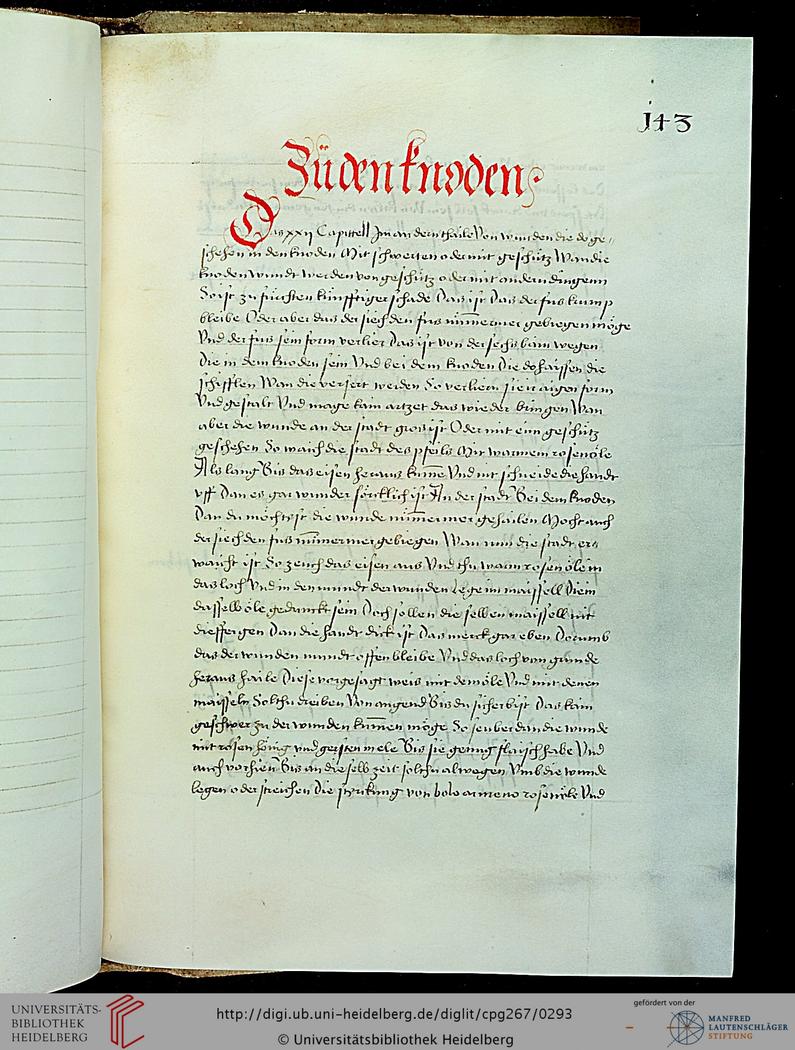 143
Zü den knoden
Das xxij Capittell Jm andern thaile Von wunden die do ge-
schehen in den knoden Mit schwerten oder mit geschütz Wan die
knoden wundt werden von geschütz oder mit andern dingenn
So ist zu fürchten künfftiger schade Das ist Das der fus krump
bleibe Oder aber das der siech den fus nimmermer gebiegen möge
Vnd der fus sein form verlier Das ist von der sechs bain wegen
Die in dem knoden sein Vnd bei dem knoden Die do haissen die
schifflen Wan die versert werden So verliern sie ir aigen form
Vnd gestalt Vnd mage kain artzet das wieder bringen Wan
aber die wunde an der stadt gros ist Oder mit eim geschütz
geschehen So waich die stadt des pfeils Mit warmem rosenöle
Als lang Bis das eisen heraus kume Vnd nit schneide die handt
vff Dan es gar wunder förcklich ist An der stadt Bei dem knoden
Dan du möchtest die wunde nimmermer gehailen Mocht auch
der siech den fus nimmermer gebiegen Wan nun die stadt er-
waicht ist So zeuch das eisen aus Vnd thu warm rosenöle in
das loch Vnd in den mundt der wunden Lege im maissell Diein
dasselb öle gedunckt sein Doch sollen die selben maissell nit
dieffer gen Dan die handt dick ist Das merck gar eben Dorumb
das der wunden mundt offen bleibe Vnd das loch von grunde
heraus haile Diese vorgesagt weis mit dem öle Vnd mit denen
maisseln Solthu dreiben Von angend Bis du sicher bist Das kain
geschwer zu der wunden kummen möge So seuber dan die wunde
mit rosen hönig vnd gersten mele Bis sie genug flaisch habe Vnd
auch vorhien Bis an die selb zeit solthu alwegen Vmb die wunde
legen oder streichen Die styrkung von bolo armeno rosenöle Vnd
UNIVERSITÄTS-
BIBLIOTHEK
HEIDELBERG
http://digi.ub.uni-heidelberg.de/diglit/cpg267/0293
© Universitätsbibliothek Heidelberg
gefördert von der
MANFRED
LAUTENSCHLÄGER
STIFTUNG